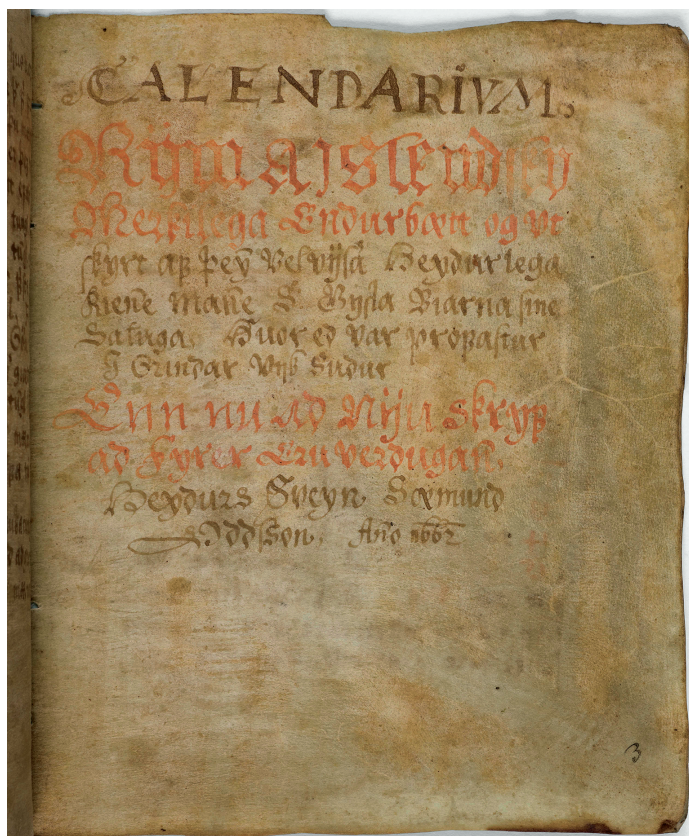 CALENDARIVM.
Rÿm A Jslendsky
Merkilega Endurbætt og vt
skyrt af þeÿ Velvÿsa Heydurlega
kiene Mane S. Gysla Biarna sine
Huor ed var profastur
J Grindar Vijk Sudur
Enn nu Ad Nÿiu skryf
ad Fyrer Eruverdugan.
Heydurs Sveyn Sæmund
Oddsson. Año 1662
3